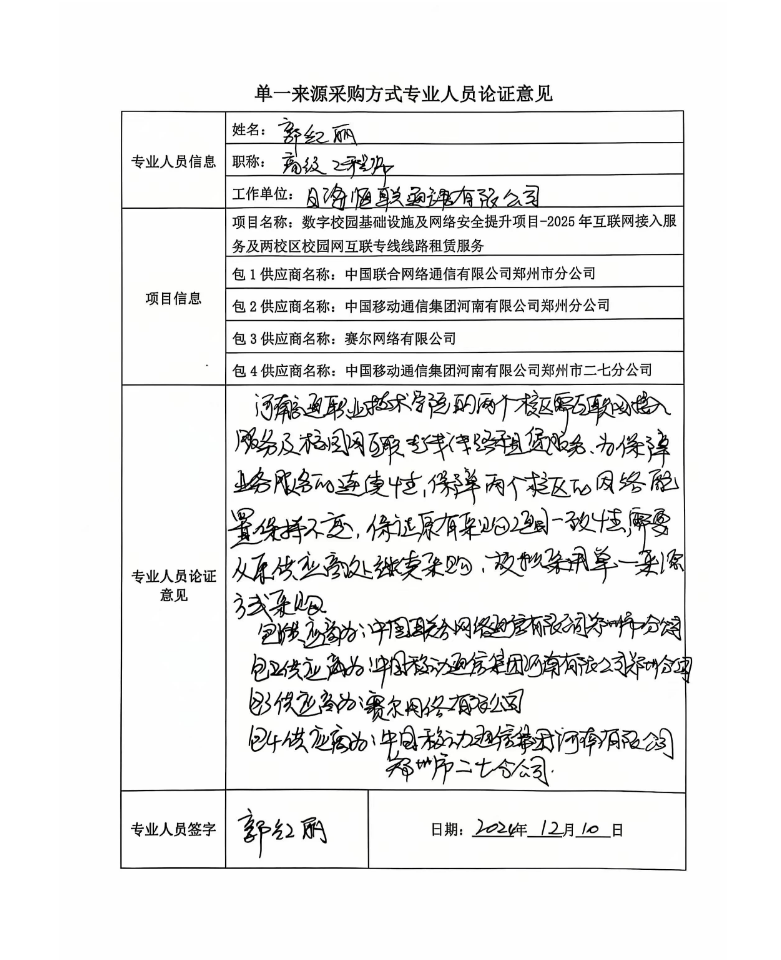 单一来源采购方式专业人员论证意见
专业人员信息
姓名：郭红丽
职称：高级工程师
工作单位：恒联通讯有限公司
项目信息
项目名称：数字校园基础设施及网络安全提升项目-2025年互联网接入服
务及两校区校园网互联专线线路租赁服务
包1供应商名称：中国联合网络通信有限公司郑州市分公司
包2供应商名称：中国移动通信集团河南有限公司郑州分公司
包3供应商名称：赛尔网络有限公司
包4供应商名称：中国移动通信集团河南有限公司郑州市二七分公司
专业人员论证
意见
河南交通职业技术学院的两个校区需互联网接入
服务及校园网互联专线线路租赁服务、为保障
业务服务的连续性，保障两个校区的网络配
置保持不变，保证原有采购项目一致性，需要
从原供应商处继续采购，故拟采用单一来源
方式采购。
包1供应商为：中国联合网络通信有限公司郑州市分公司
包2供应商为：中国移动通信集团河南有限公司郑州分公司
包3供应商为：赛尔网络有限公司
包4供应商为：中国移动通信集团河南有限公司
郑州市二七分公司.
专业人员签字
郭红丽
日期：2024年 12月10日